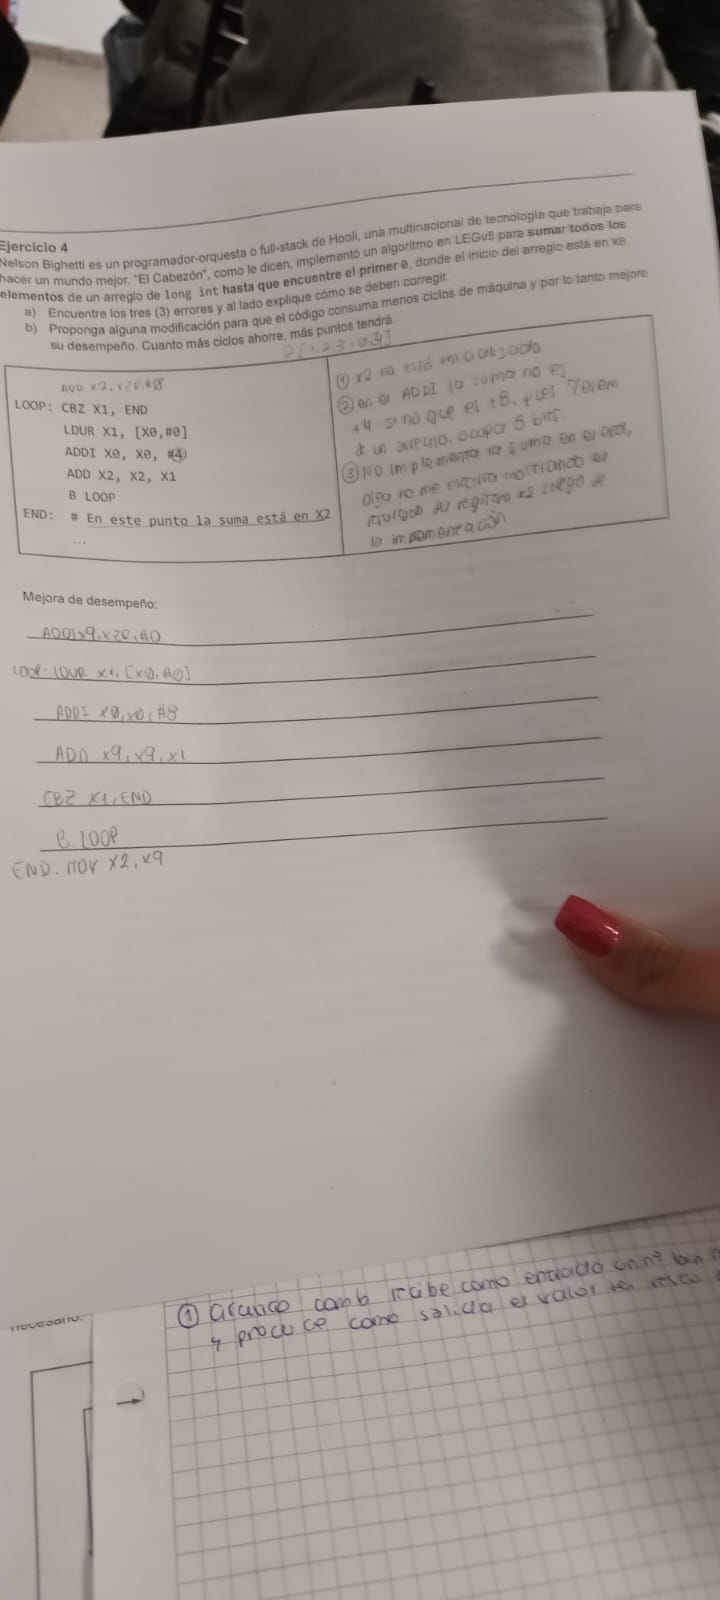 Ejercicio 4
Nelson Bighetti es un programador-orquesta o full-stack de Hooli, una multinacional de tecnología que trabaja para
hacer un mundo mejor. "El Cabezón", como le dicen, implementó un algoritmo en LEGv8 para sumar todos los
elementos de un arreglo de long int hasta que encuentre el primer 0, donde el inicio del arreglo está en X0.
a) Encuentre los tres (3) errores y al lado explique cómo se deben corregir.
b) Proponga alguna modificación para que el código consuma menos ciclos de máquina y por lo tanto mejore
su desempeño. Cuanto más ciclos ahorre, más puntos tendrá.
ADD x2, x20, #0
LOOP: CBZ X1, END
LDUR X1, [X0,#0]
ADDI X0, X0, #4
ADD X2, X2, X1
B LOOP
END: # En este punto la suma está en X2
...
① x2 no está inicializado
② en el ADDI la suma no es
+4 sino que el +8, pues elem
de un arreglo, ocupa 8 bits.
③ No implementa la suma en el
me mostrando el
registro x2 luego de
la
Mejora de desempeño:
ADDI x9, x20, #0
LOOP: LDUR x1, [x0, #0]
ADDI x0, x0, #8
ADD x9, x9, x1
CBZ x1, END
B LOOP
END: MOV x2, x9
necesario.
① Gráfico comb recibe como entrada un nº
y produce como salida el valor
→